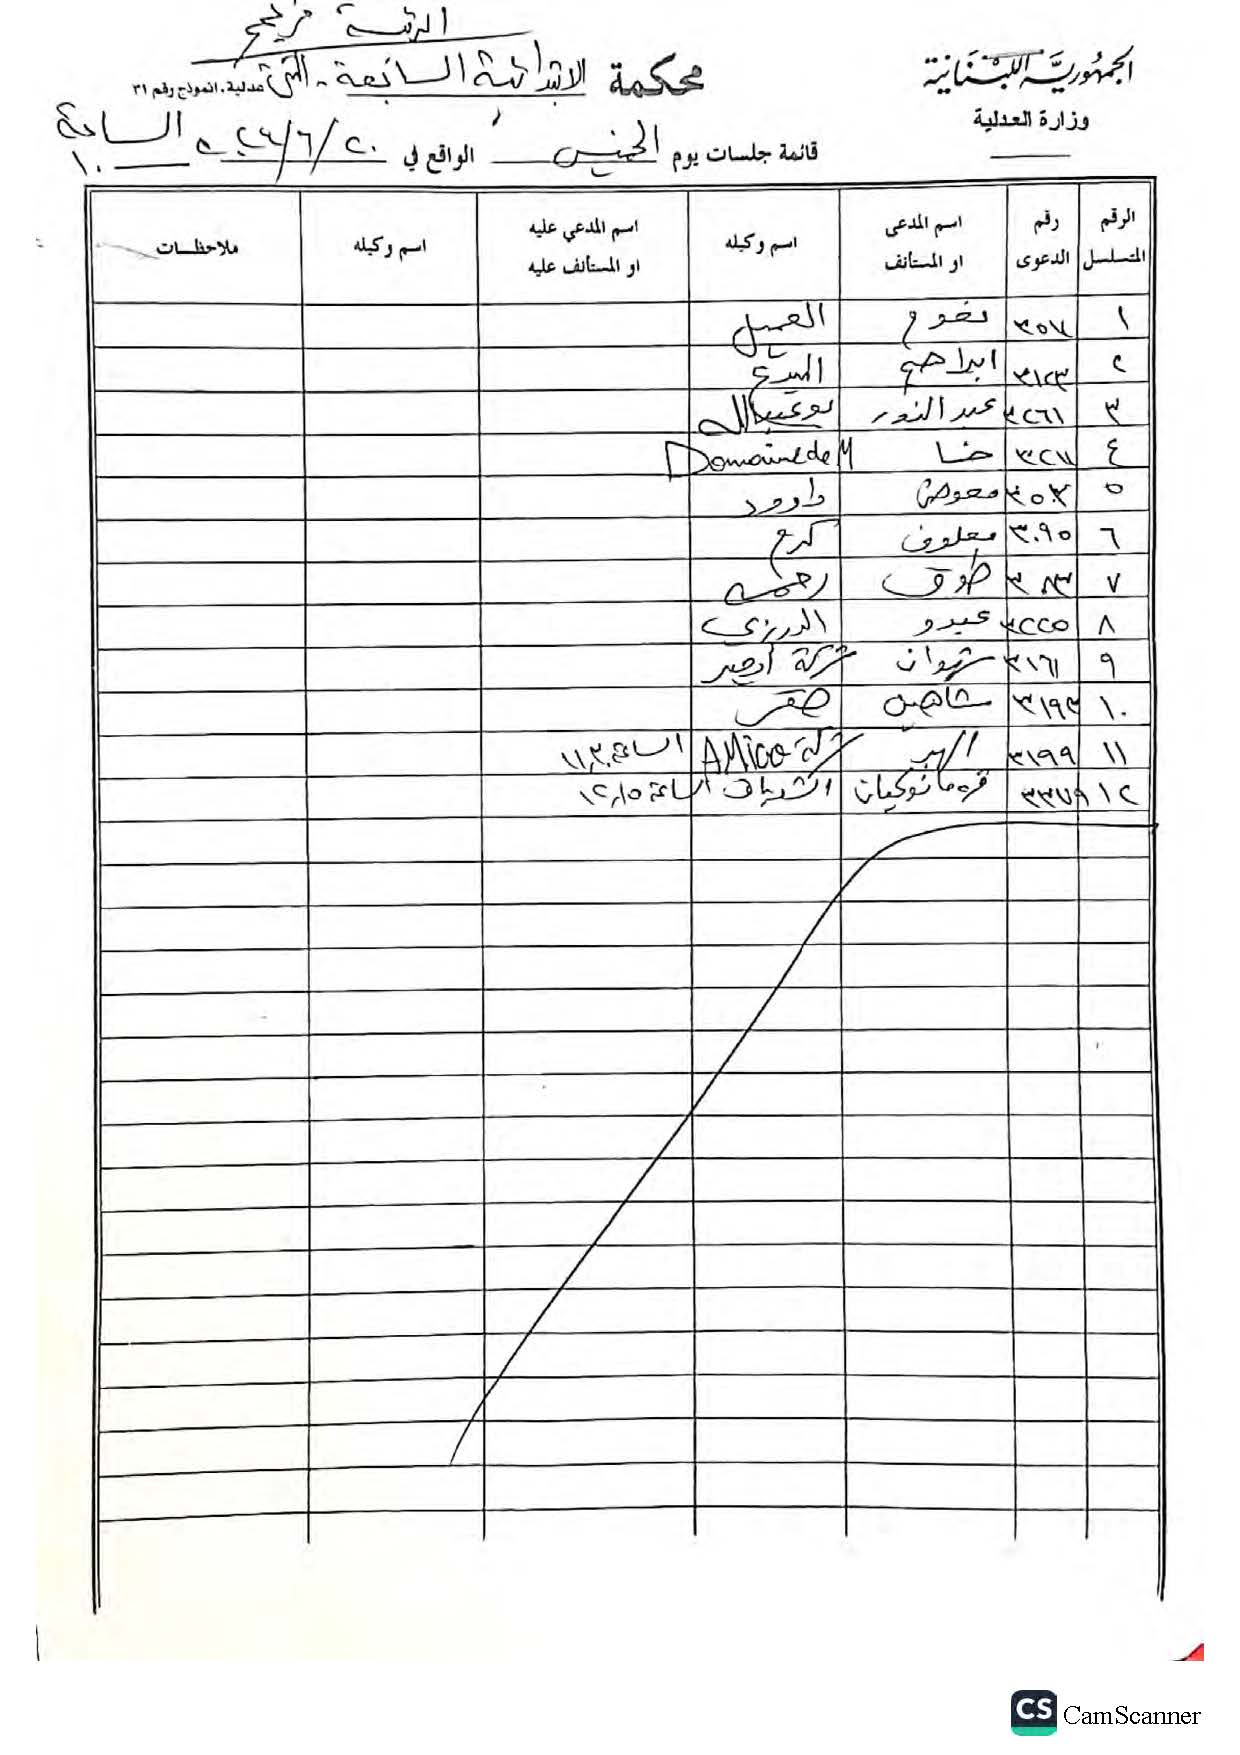 الرئيسة فريحي
الجمهورية اللبنانية
وزارة العدلية
محكمة الابتدائية السابعة - المتن عدلية، انموذج رقم ٣١
قائمة جلسات يوم الخميس الواقع في ٢٠/٦/٢٠٢٤ الساعة ١٠
الرقم المتسلسل رقم الدعوى اسم المدعى او المستأنف اسم وكيله اسم المدعي عليه او المستأنف عليه اسم وكيله ملاحظات
١ نعوم العميل
٢ ٣١٢٣ ابراهيم
٣ ٣٢٦١ عبد النور بو عبدالله
٤ حنا Domaine de M
٥ معوض داوود
٦ ٣٠٩٥ معلوف كرم
٧ طوق رحمه
٨ ٣٢٢٥ عبدو الدرزي
٩ ٣١٦١ شهوان شركة
١٠ ٣١٩٣ شاهين صقر
١١ ٣١٩٩ الهبر شركة AMico الساعة ١١,٣٠
١٢ ٣٣٧٩ قره مانوكيان الشدياق الساعة ١٢,١٥
CS CamScanner